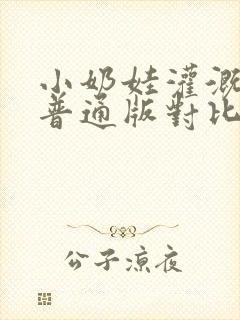 小奶娃灌溉
普通版對比
公子涼夜